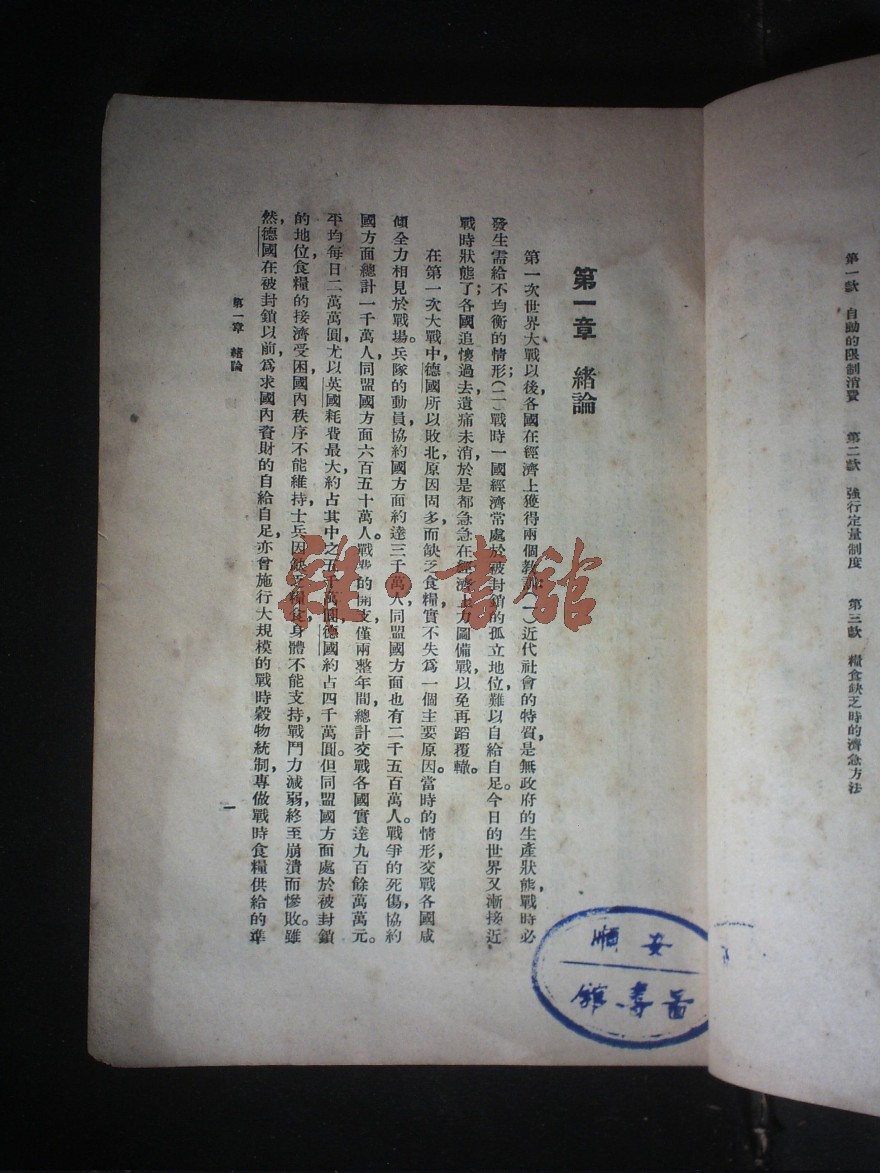 第一款　自動的限制消費　　第二款　強行定量制度　　第三款　糧食缺乏時的濟急方法
第一章　緒論
第一次世界大戰以後，各國在經濟上獲得兩個教訓：（一）近代社會的特質，是無政府的生產狀態，戰時必
發生需給不均衡的情形；（二）戰時一國經濟常處於被封鎖的孤立地位，難以自給自足。今日的世界又漸接近
戰時狀態了；各國追懷過去，遺痛未消，於是都急急在經濟上力圖備戰，以免再蹈覆轍。
在第一次大戰中，德國所以敗北，原因固多，而缺乏食糧，實不失為一個主要原因。當時的情形，交戰各國咸
傾全力相見於戰場。兵隊的動員，協約國方面約達三千萬人，同盟國方面也有二千五百萬人。戰爭的死傷，協約
國方面總計一千萬人，同盟國方面六百五十萬人。戰費的開支，僅兩整年間，總計交戰各國實達九百餘萬萬元。
平均每日二萬萬圓，尤以英國耗費最大，約占其中之五千萬圓，德國約占四千萬圓。但同盟國方面處於被封鎖
的地位，食糧的接濟受困，國內秩序不能維持，士兵因缺乏糧食，身體不能支持，戰鬥力減弱，終至崩潰而慘敗。雖
然，德國在被封鎖以前，為求國內資財的自給自足，亦曾施行大規模的戰時穀物統制，專做戰時食糧供給的準
第一章　緒論
一
雜·書館
安順
圖書館